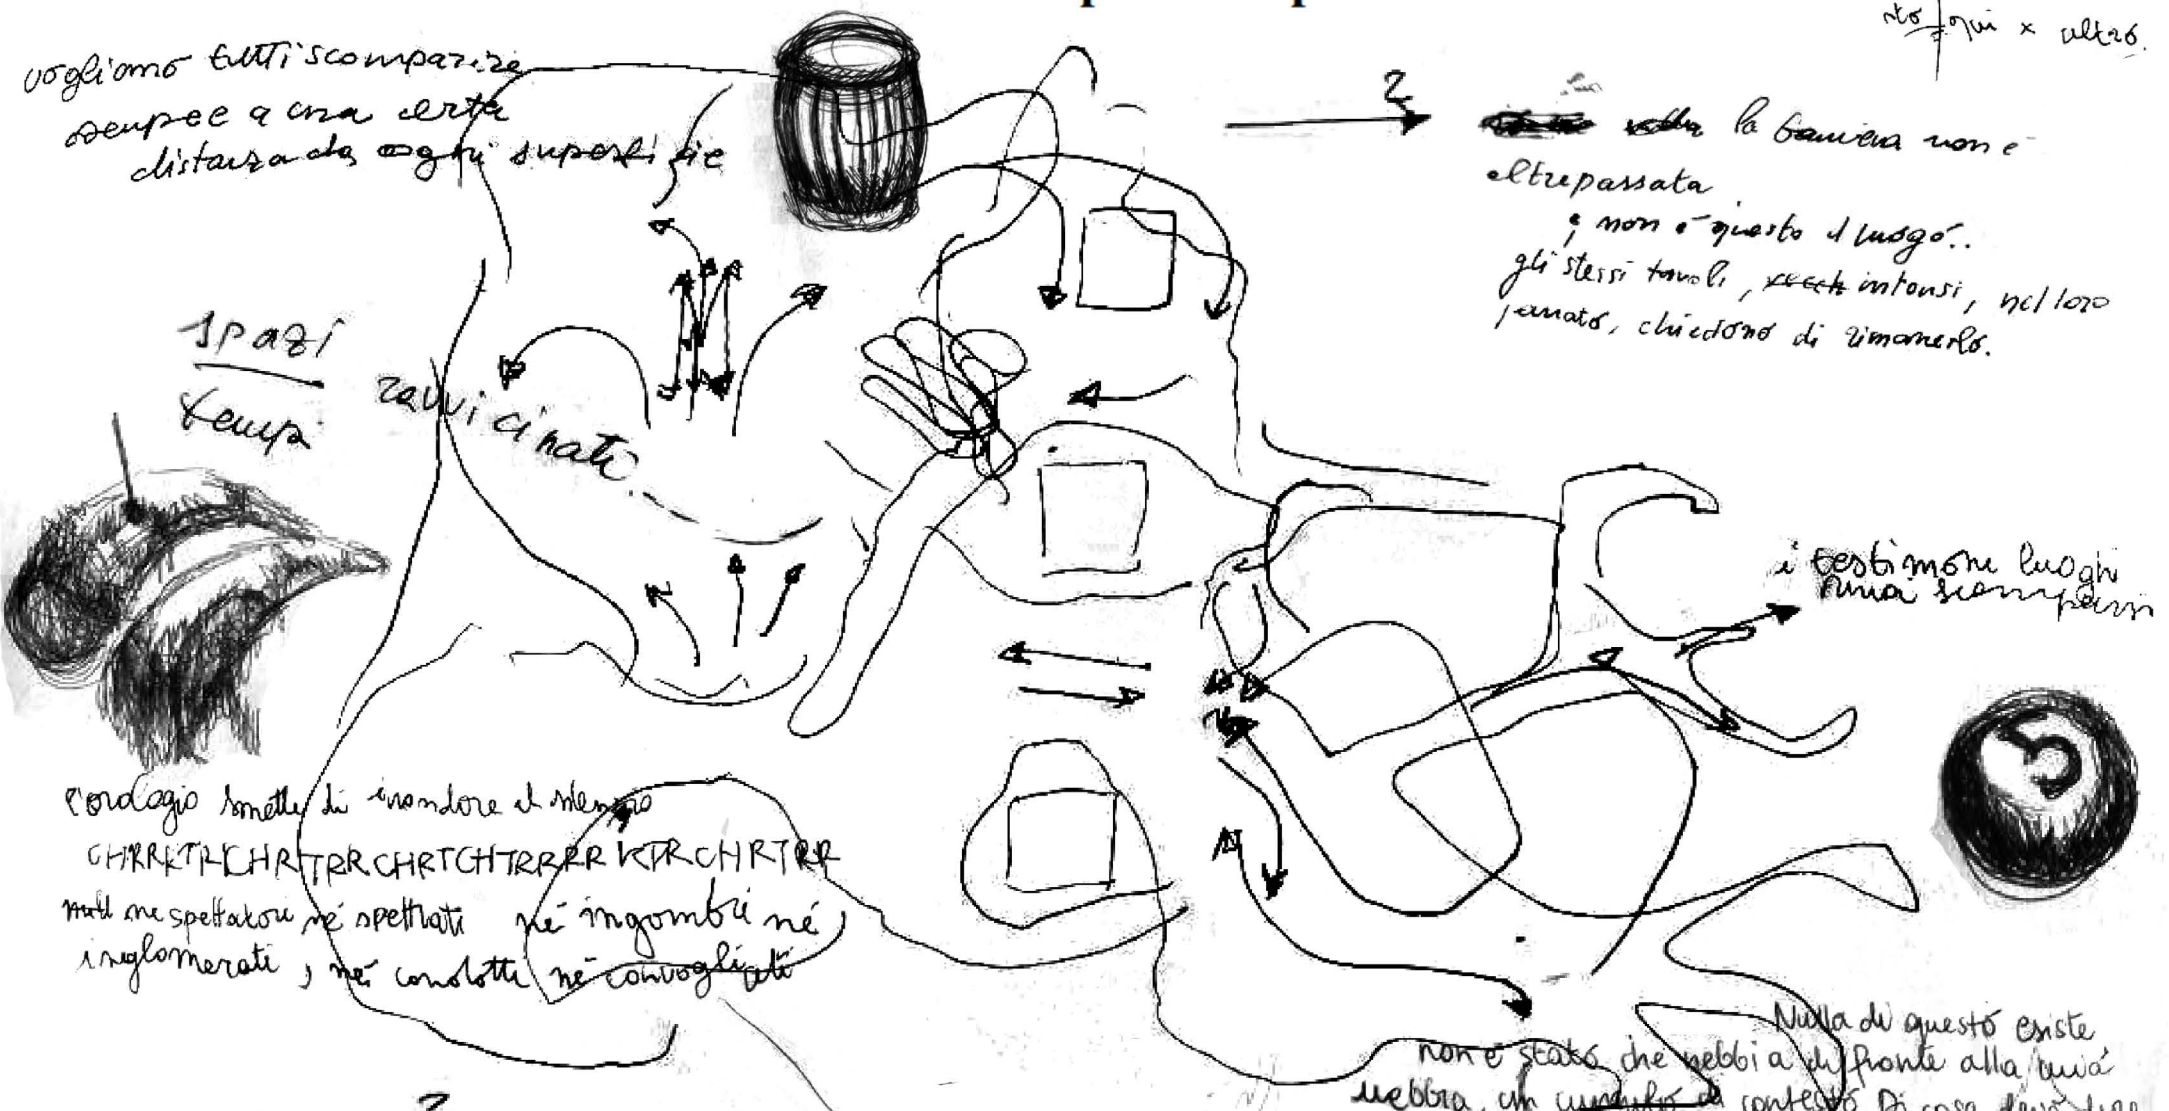 sto qui x altro.
vogliamo tutti scomparire
sempre a una certa
distanza da ogni superficie
2
la barriera non è
oltrepassata
e non è questo il luogo..
gli stessi tavoli, intonsi, nel loro
passato, chiedono di rimanerlo.
spazi
tempi
ravvicinati.
i testimoni luoghi
mia scomparsi
5
l'orologio smette di inondare il silenzio
CHRRKTRKCHRTRRCHRTCHTRRRR KTRCHRTRR
né spettatori né spettrati né ingombri né
inglomerati, né condotti né convogliati
Nulla di questo esiste
non è stato che nebbia di fronte alla mia
nebbia, un cumulo di contesto Di cosa
2